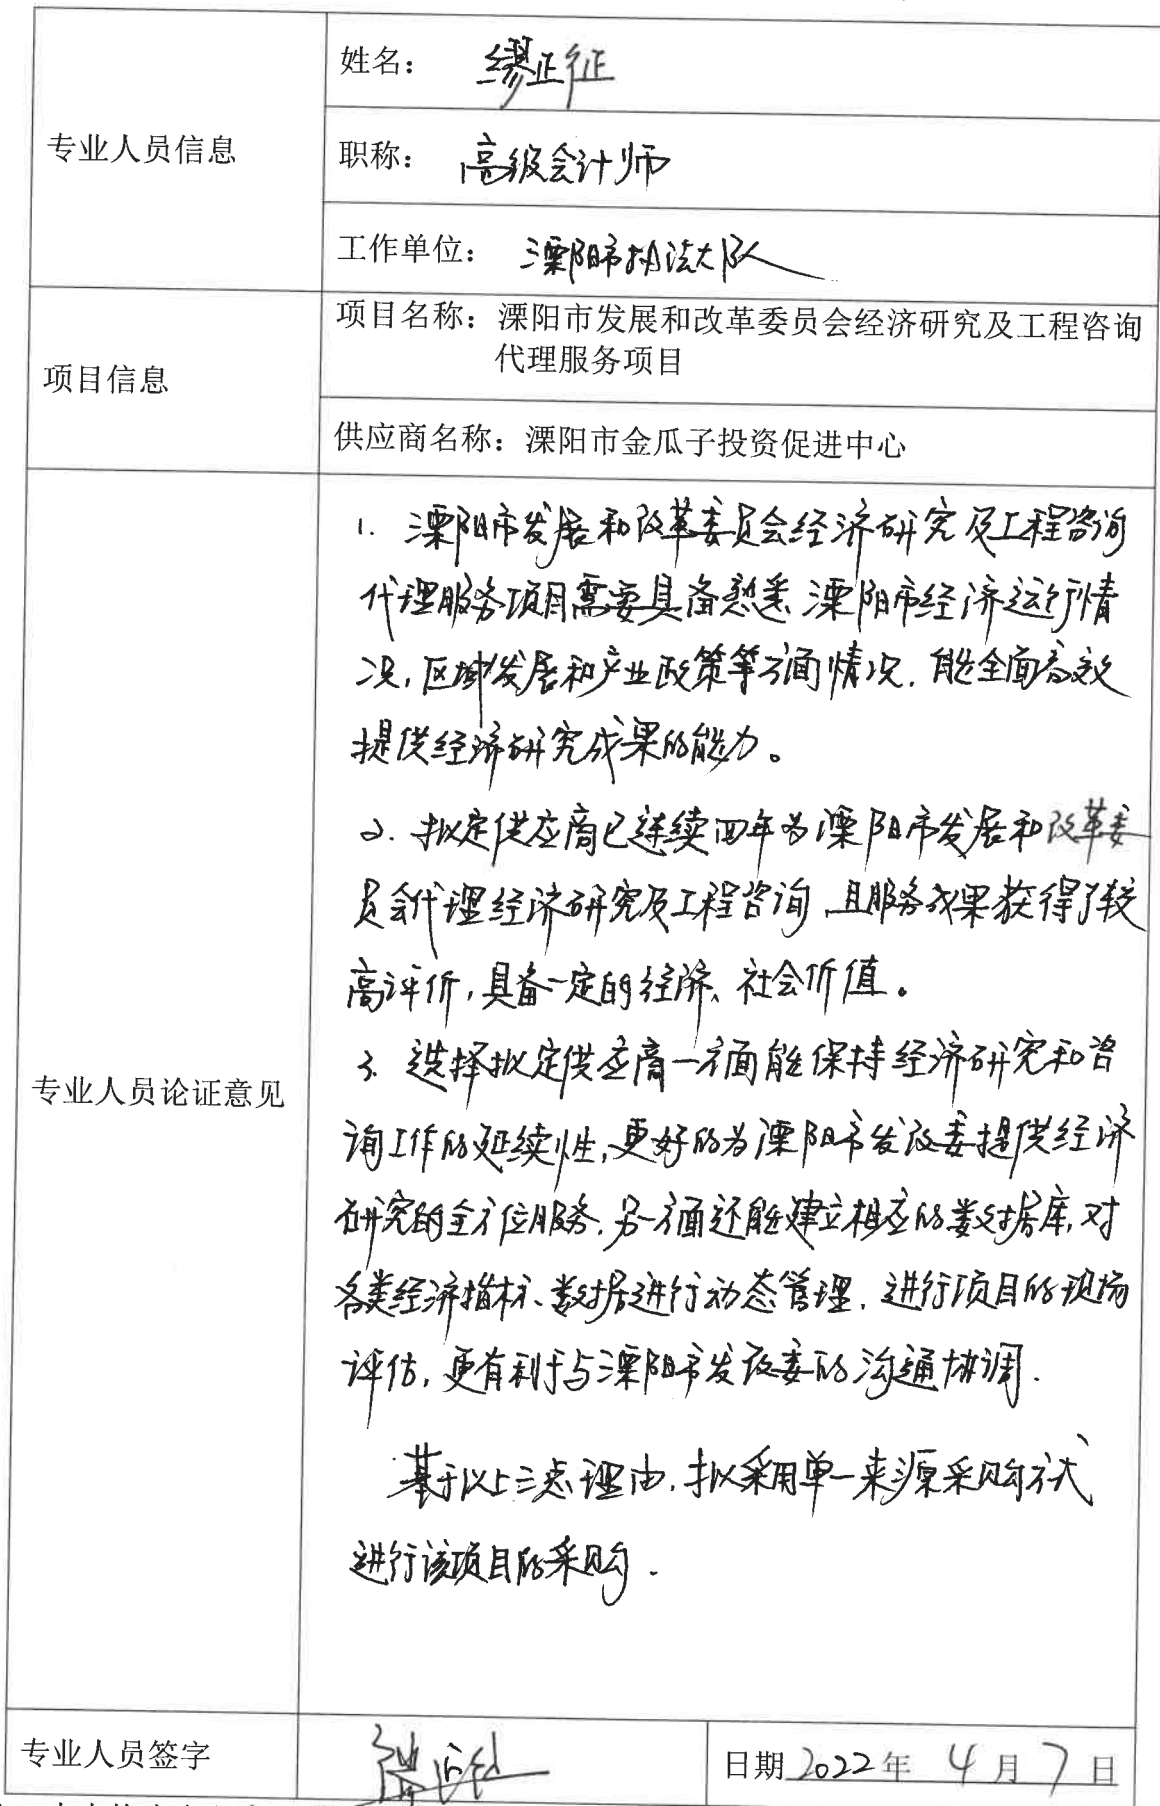 专业人员信息
姓名： 缪正征
职称： 高级会计师
工作单位： 溧阳市执法大队
项目信息
项目名称：溧阳市发展和改革委员会经济研究及工程咨询
代理服务项目
供应商名称：溧阳市金瓜子投资促进中心
专业人员论证意见
1. 溧阳市发展和改革委员会经济研究及工程咨询
代理服务项目需要具备熟悉溧阳市经济运行情
况，区域发展和产业政策等方面情况，能全面高效
提供经济研究成果的能力。
2. 拟定供应商已连续四年为溧阳市发展和改革委
员会代理经济研究及工程咨询，且服务成果获得了较
高评价，具备一定的经济、社会价值。
3. 选择拟定供应商一方面能保持经济研究和咨
询工作的延续性，更好的为溧阳市发改委提供经济
研究的全方位服务，另一方面还能建立相应的数据库，对
各类经济指标、数据进行动态管理，进行项目的现场
评估，更有利于与溧阳市发改委的沟通协调.
基于以上三点理由，拟采用单一来源采购方式
进行该项目的采购.
专业人员签字
日期 2022 年 4 月 7 日